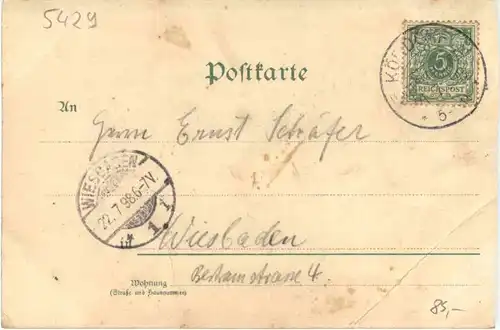 5429
5
REICHSPOST
* 5-
Postkarte
An
Herrn Ernst Schäfer
WIESBADEN
22.7.98.6-7V.
* 1 i
in Wiesbaden
Wohnung
(Straße und Hausnummer)
4.
85,-